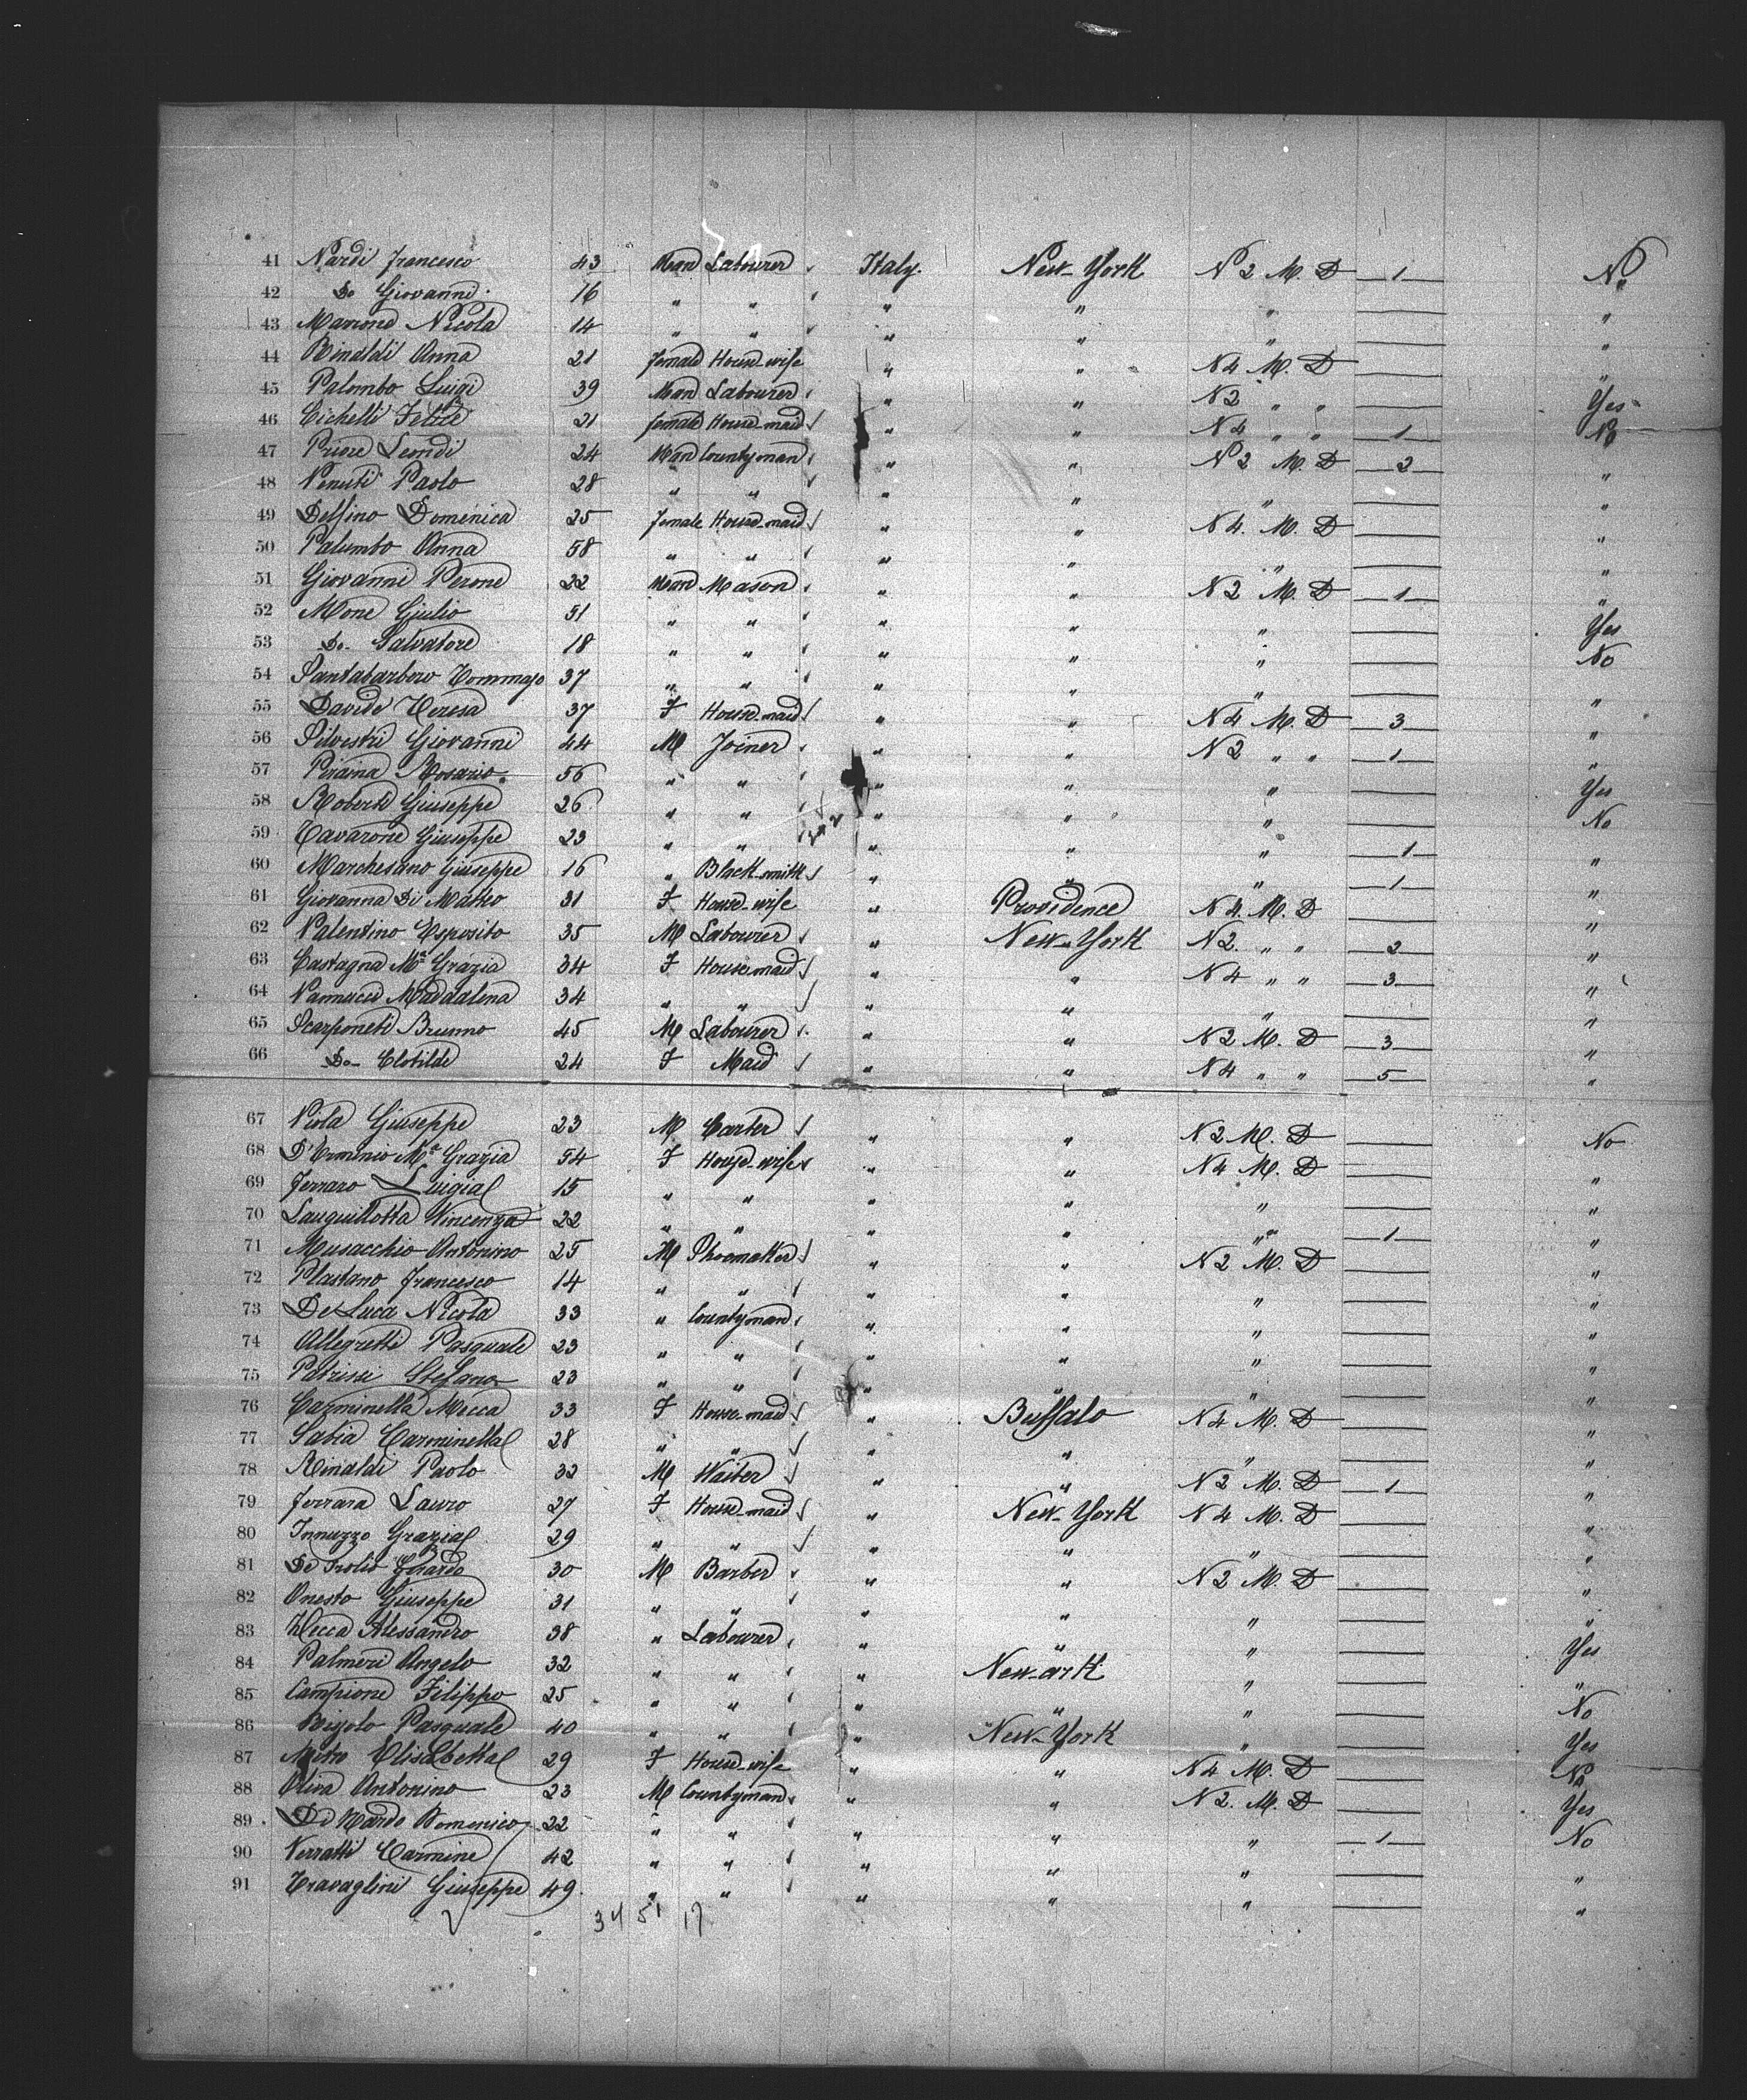 41 Nardi Francesco 43 Man Labourer Italy. New-York N 2 M. D 1 No
42 Do Giovanni 16 " " " " " "
43 Marrone Nicola 14 " " " " " "
44 Rinaldi Anna 21 female House-wife " " N 4 M. D "
45 Palombo Luigi 39 Man Labourer " " N 2 " " Yes
46 Cichelli Felice 21 female House-maid " " N 4 " " 1 No
47 Priore Leondi 24 Man Countyman " " N 2 M. D 2 "
48 Venuti Paolo 28 " " " " " "
49 Delfino Domenica 25 female House-maid " " N 4. M. D "
50 Palumbo Anna 58 " " " " " "
51 Giovanni Perone 22 Man Mason " " N 2 M. D 1 "
52 Mone Giulio 51 " " " " " Yes
53 Do- Salvatore 18 " " " " " No
54 Santabarbara Tommaso 37 " " " " " "
55 Davide Teresa 37 F House-maid " " N 4 M. D 3 "
56 Silvestri Giovanni 44 M Joiner " " N 2 " " 1 "
57 Piraina Rosario 56 " " " " " Yes
58 Roberti Giuseppe 26 " " " " " No
59 Tavarone Giuseppe 23 " " " " " 1 "
60 Marchesano Giuseppe 16 " Black-smith " " " 1 "
61 Giovanna Di Matteo 31 F House-wife " Providence N 4. M. D "
62 Valentino Esposito 35 M Labourer " New-York N 2. " " 2 "
63 Castagna Ma Grazia 34 F House maid " " N 4 " " 3 "
64 Vannucci Maddalena 34 " " " " " "
65 Scarponeti Brunno 45 M Labourer " " N 2 M. D 3 "
66 Do- Clotilde 24 F Maid " " N 4 " " 5 "
67 Viola Giuseppe 23 M Carter " " N 2 M. D No
68 D'Erminio Ma Grazia 54 F House-wife " " N 4 M. D "
69 Ferraro Luigia 15 " " " " " "
70 Lauquillotta Vincenza 22 " " " " " 1 "
71 Musacchio Antonino 25 M Shoemaker " " N 2 M. D "
72 Plastano Francesco 14 " " " " " "
73 De Luca Nicola 33 " Countyman " " " "
74 Allegretti Pasquale 23 " " " " " "
75 Patrissi Stefano 23 " " " " " "
76 Carminella Mecca 33 F House-maid " Buffalo N 4 M. D "
77 Sabia Carminella 28 " " " " " "
78 Rinaldi Paolo 32 M Waiter " " N 2 M. D 1 "
79 Ferrara Lauro 27 F House-maid " New-York N 4 M. D "
80 Innuzzo Grazia 29 " " " " " "
81 De Gerardo 30 M Barber " " N 2 M. D "
82 Onesto Giuseppe 31 " " " " " "
83 Mecca Alessandro 38 " Labourer " " " Yes
84 Palmeri Angelo 32 " " " New-ark " "
85 Campione Filippo 25 " " " " " No
86 Rigolo Pasquale 40 " " " New-York " Yes
87 Elisabetta 29 F House-wife " " N 4 M. D No
88 Oliva Antonino 23 M Countyman " " N 2. M. D Yes
89 Di Nardo Domenico 22 " " " " " 1 No
90 Verratti Carmine 42 " " " " " "
91 Travaglini Giuseppe 49 " " " " " "
34 51 17